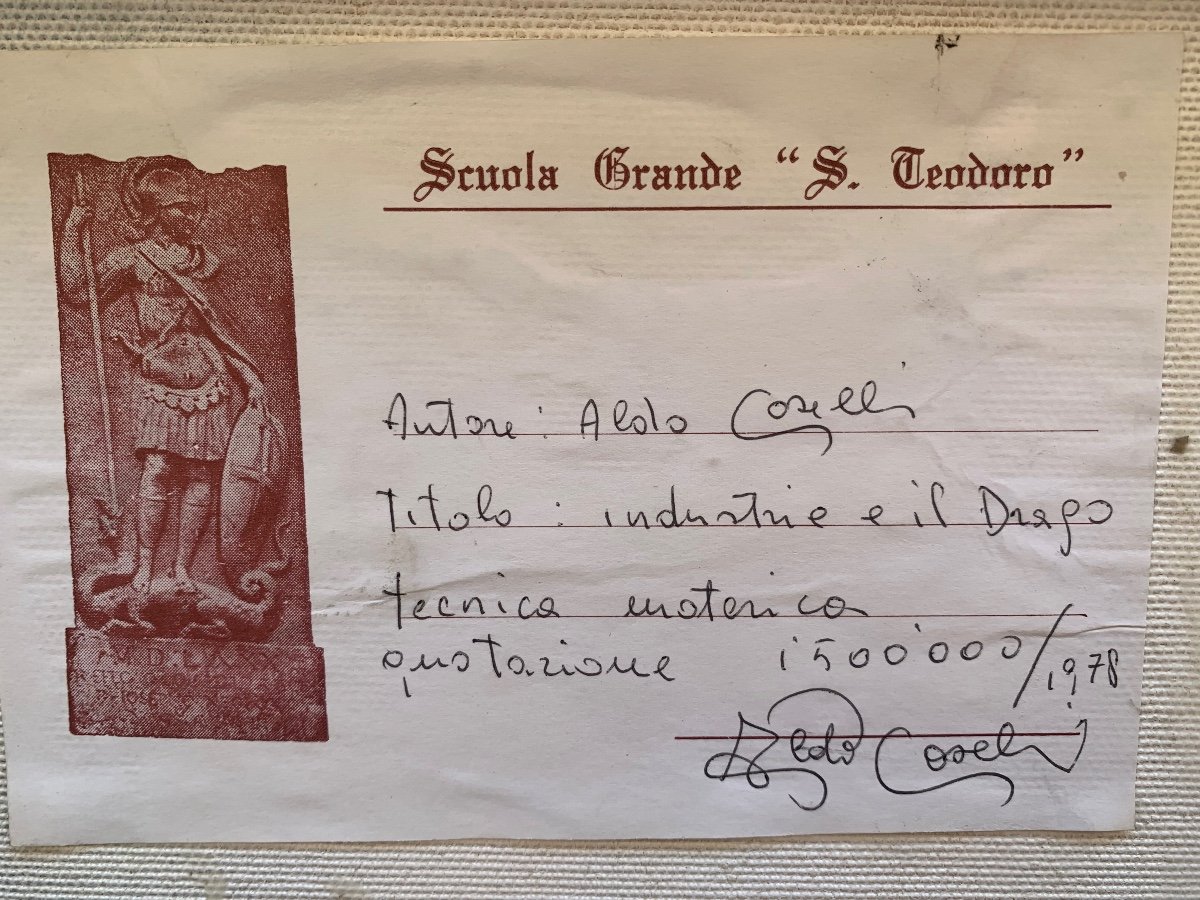 Scuola Grande “S. Teodoro”
Autore: Aldo Coselli
Titolo: industrie e il Drago
tecnica materica
quotazione 1500'000/1978
Aldo Coselli